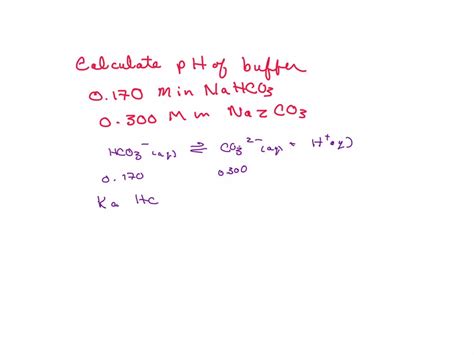 Calculate pH of buffer
0.170 M in NaHCO3
0.300 M in Na2CO3
HCO3⁻(aq) ⇌ CO3²⁻(aq) + H⁺(aq)
0.170 0.300
Ka HC